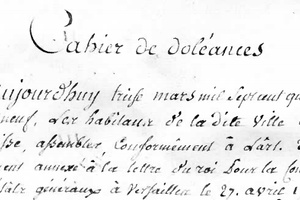 Cahier de doléances
aujourdhuy treise mars mil sept cent qu
neuf, Les habitans de la dite ville
assemblés, Conformément à L'art.
annexé à la lettre du roi pour la Con
généraux à versailles le 27. avril 1